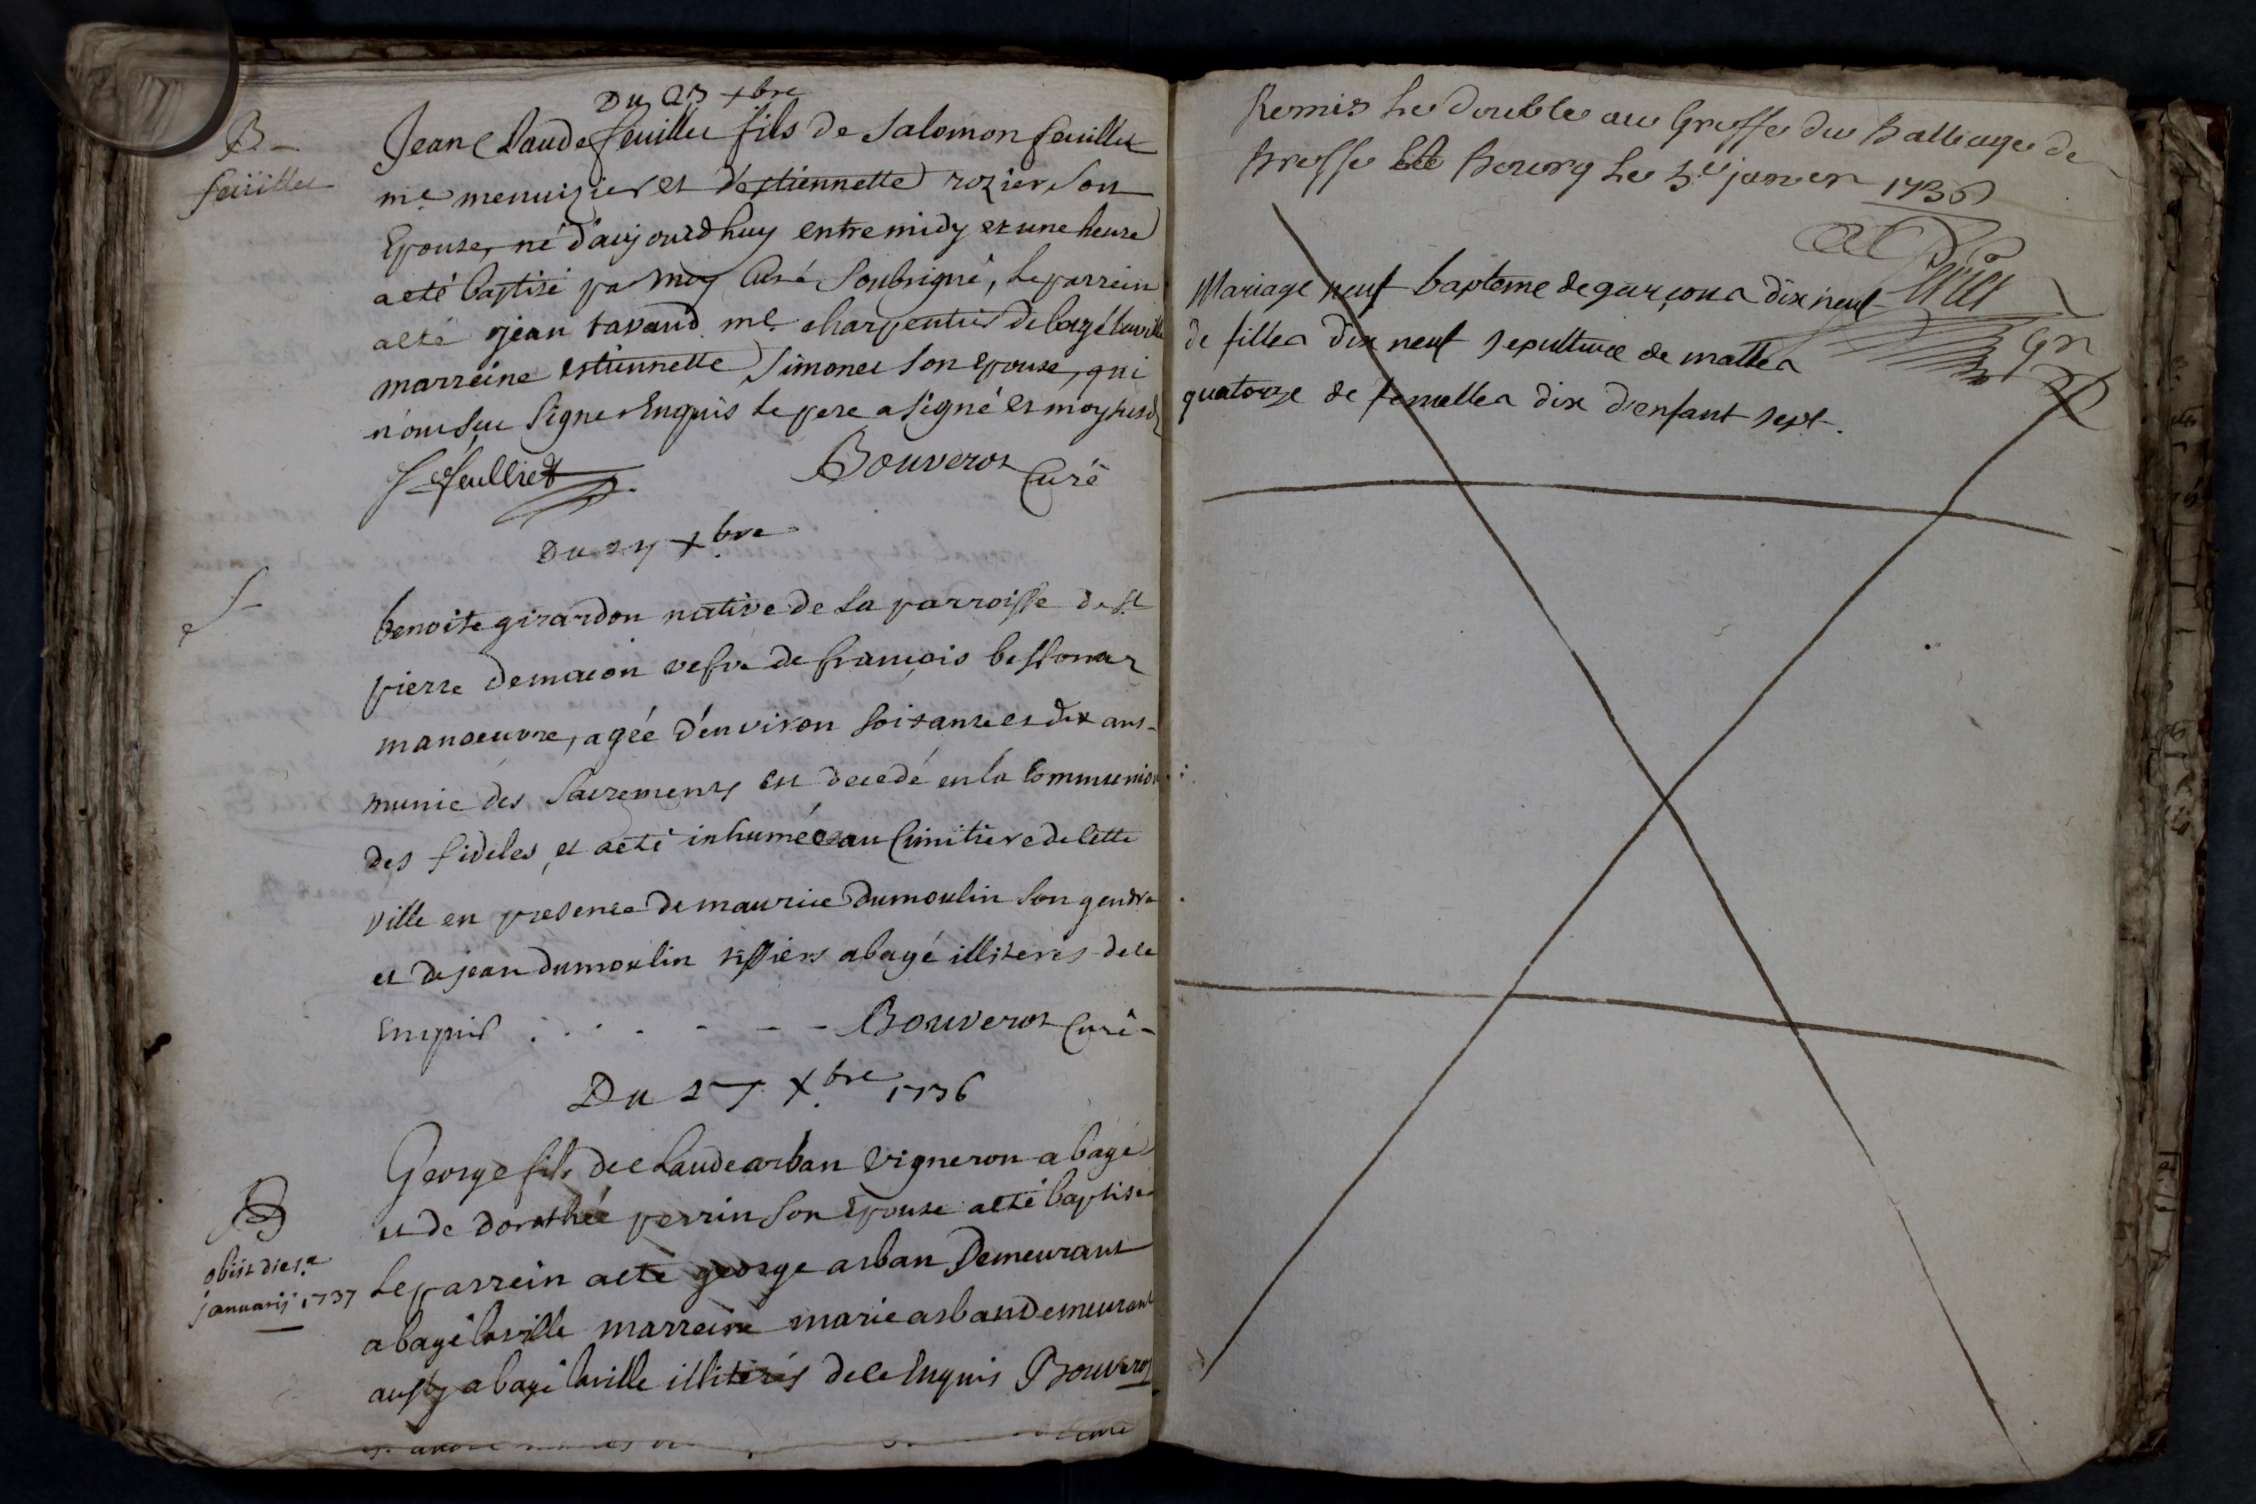 Du 23 xbre
B-
feüillet
Jean Claude feuillet fils de salomon feuillet
me menuizier et d'estiennette rozier son
Epouse, né d'aujourdhuy entre midy et une heure
a eté baptisé par moy curé soubsigné, le parrein
a eté jean tavaud me charpentier de bagé la ville
marreine estiennette simonet son epouse, qui
n'ont seu signer Enquis le pere a signé et moy susd
S feulliet
Bouverot Curé
Du 27 xbre
S-
benoite girardon native de la parroisse de st
pierre de macon vefve de françois
manoeuvre, agée d'environ soixante et dix ans
munie des sacrements est decedé en la communion
des fideles, et a eté inhumée au Cimitiere de Cette
ville en presence de maurice Dumoulin son gendre
et de jean dumoulin tissiers a bagé illiteres de ce
Enquis . . . . - - - Bouverot Curé-
Du 27 xbre 1736
B
obiit die 1a
januarij 1737
George fils de Claude arban vigneron a bagé
et de dorothée perrin son epouse a eté baptisé
Le parrein a eté george arban Demeurant
a bagé la ville marreine marie arban demeurant
aussy a bagé la ville illiterés de ce Enquis Bouverot
Curé
Remis Le double au Greffe du Balliage de
Bresse Bourg Le janvier 1736
Mariage neuf baptome de garçons dix neuf
de filles dix neuf sepulture de malles
quatorze de femelles dix d'enfant sept.